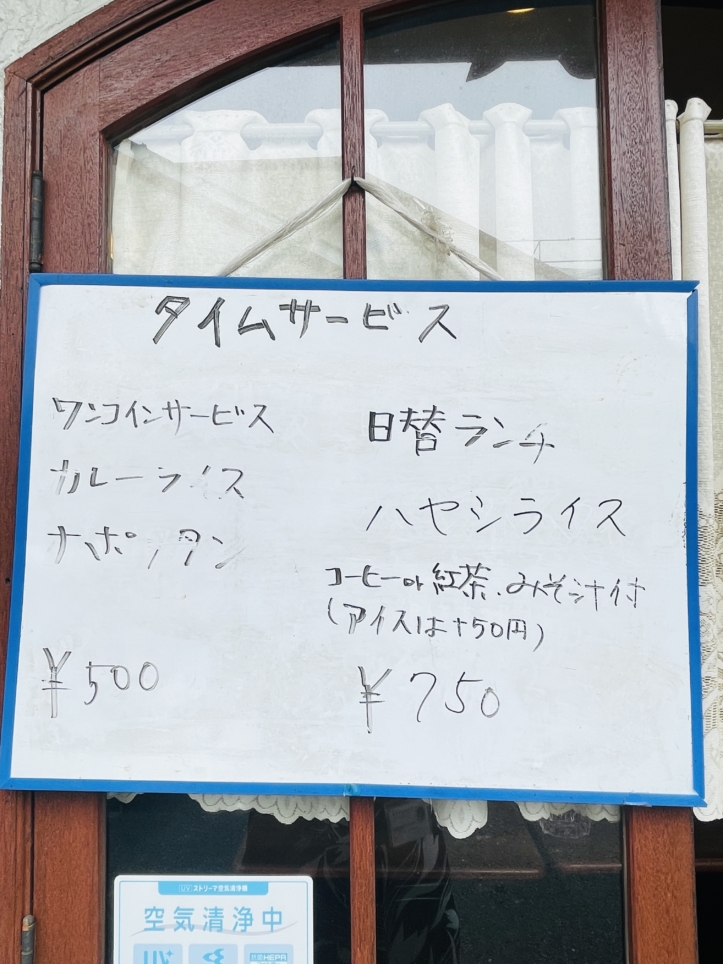 タイムサービス
ワンコインサービス
カレーライス
ナポリタン
¥500
日替ランチ
ハヤシライス
コーヒーor紅茶、みそ汁付
(アイスは+50円)
¥750
UV ストリーマ空気清浄機
空気清浄中
UV+
抗菌HEPA